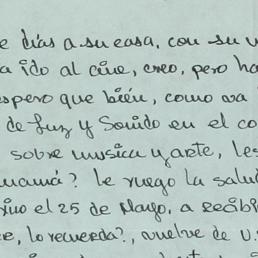 e días a su casa, con su v
a ido al cine, creo, pero ha
espero que bién, como va
de Luz y Sonido en el co
sobre musica y arte, les
mamá? le ruego la salud
el 25 de Mayo, a recibi
e, lo recuerda?, vuelve de U.S